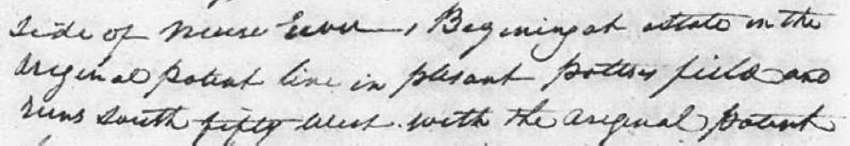 side of Neuse River, Begining at a stake in the
ariginal patent line in plesant potters field and
runs South fifty West with the ariginal patent